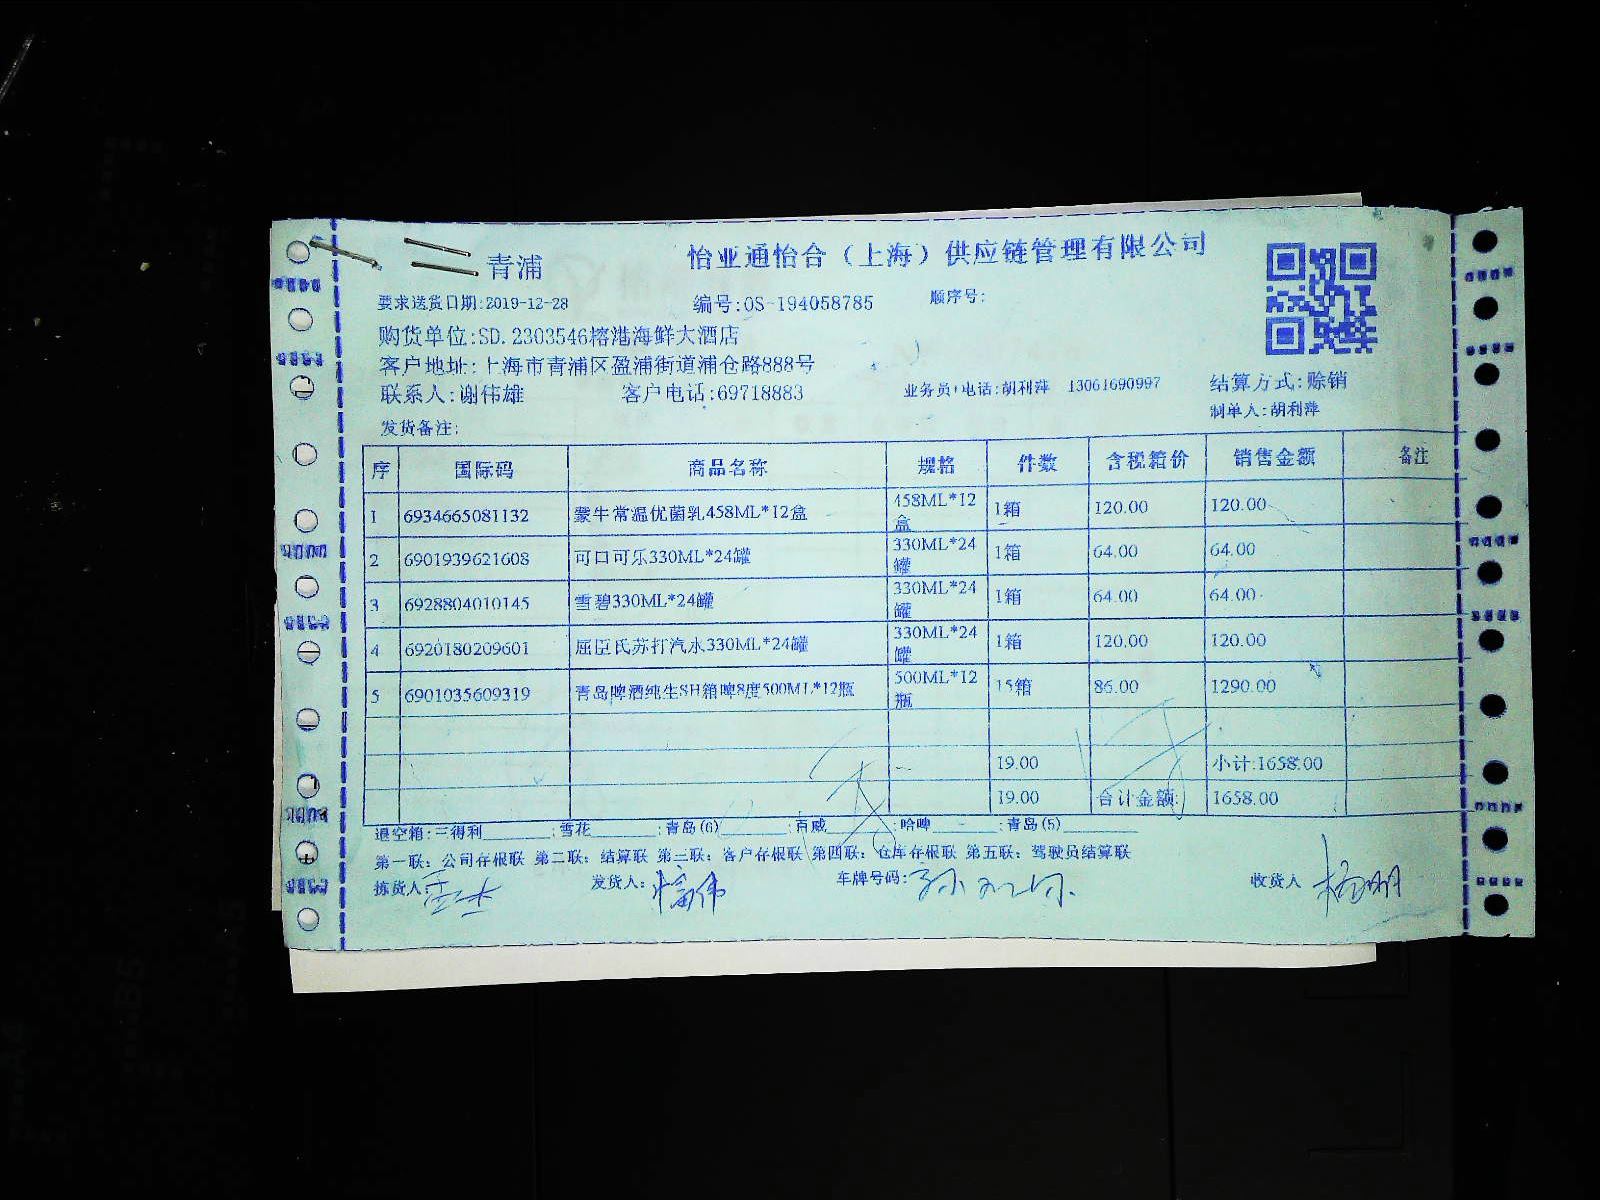 青浦
怡亚通怡合（上海）供应链管理有限公司
要求送货日期:2019-12-28 编号:OS-194058785 顺序号:
购货单位:SD.2303546榕港海鲜大酒店
客户地址:上海市青浦区盈浦街道浦仓路888号
联系人:谢伟雄 客户电话:69718883 业务员+电话:胡利萍 13061690997 结算方式:赊销
制单人:胡利萍
发货备注:
序 国际码 商品名称 规格 件数 含税箱价 销售金额 备注
1 6934665081132 蒙牛常温优菌乳458ML*12盒 458ML*12盒 1箱 120.00 120.00
2 6901939621608 可口可乐330ML*24罐 330ML*24罐 1箱 64.00 64.00
3 6928804010145 雪碧330ML*24罐 330ML*24罐 1箱 64.00 64.00
4 6920180209601 屈臣氏苏打汽水330ML*24罐 330ML*24罐 1箱 120.00 120.00
5 6901035609319 青岛啤酒纯生SH箱啤8度500ML*12瓶 500ML*12瓶 15箱 86.00 1290.00
19.00 小计:1658.00
19.00 合计金额: 1658.00
退空箱:三得利______;雪花______;青岛(6)______;百威______;哈啤______;青岛(5)______
第一联：公司存根联 第二联：结算联 第三联：客户存根联 第四联：仓库存根联 第五联：驾驶员结算联
拣货人 发货人: 车牌号码: 收货人